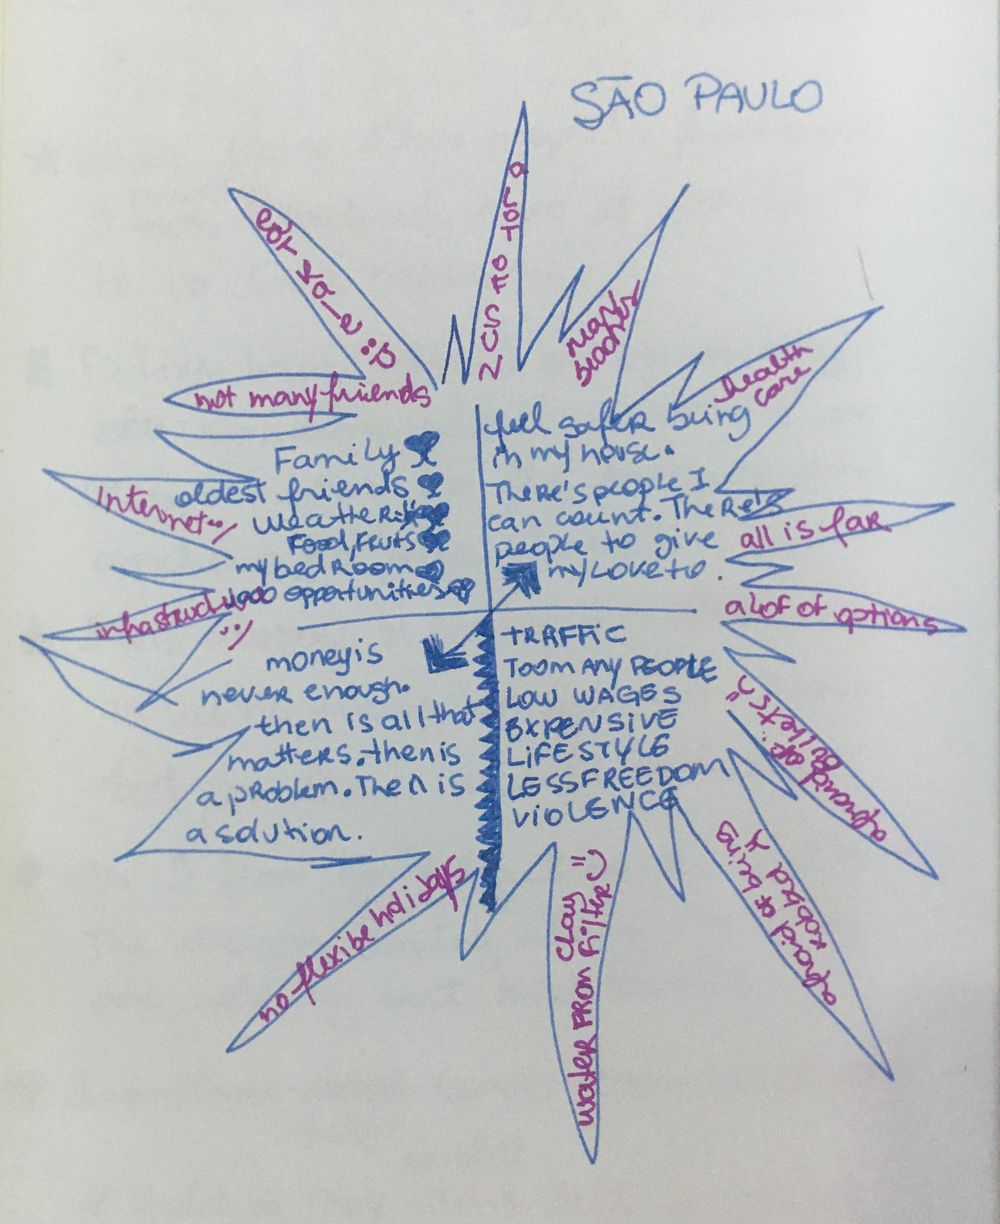 SÃO PAULO
a lot of sun
many
health
care
not many friends
Family
oldest friends
weather
Food, fruits
my bedroom
opportunities
Internet
feel safer being
in my house.
There's people I
can count. There's
people to give
my love to.
all is far
a lot of options
infrastructure
money is
never enough.
then is all that
matters. then is
a problem. Then is
a solution.
TRAFFIC
TOO MANY PEOPLE
LOW WAGES
EXPENSIVE
LIFESTYLE
LESS FREEDOM
VIOLENCE
afraid of
afraid of being
robbed
no flexibe holidays
water from clay
filter